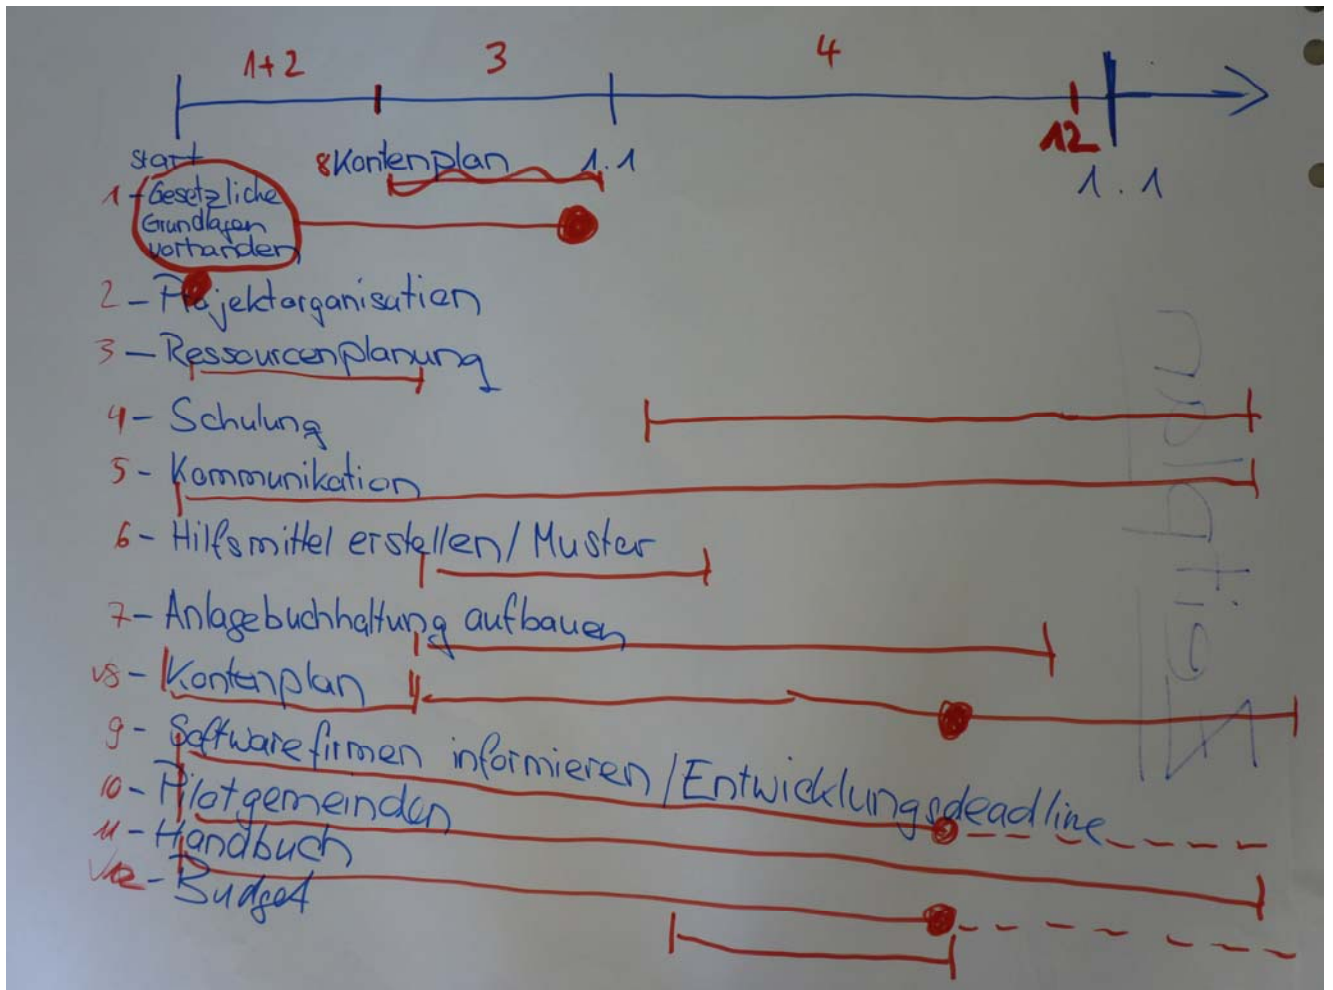 1+2 3 4
12
start 8 Kontenplan 1.1 1.1
1 - Gesetzliche
Grundlagen
vorhanden
2 - Projektorganisation
3 - Ressourcenplanung
4 - Schulung
5 - Kommunikation
6 - Hilfsmittel erstellen / Muster
7 - Anlagebuchhaltung aufbauen
v8 - Kontenplan
9 - Softwarefirmen informieren / Entwicklungsdeadline
10 - Pilotgemeinden
11 - Handbuch
v12 - Budget
Zeitplan